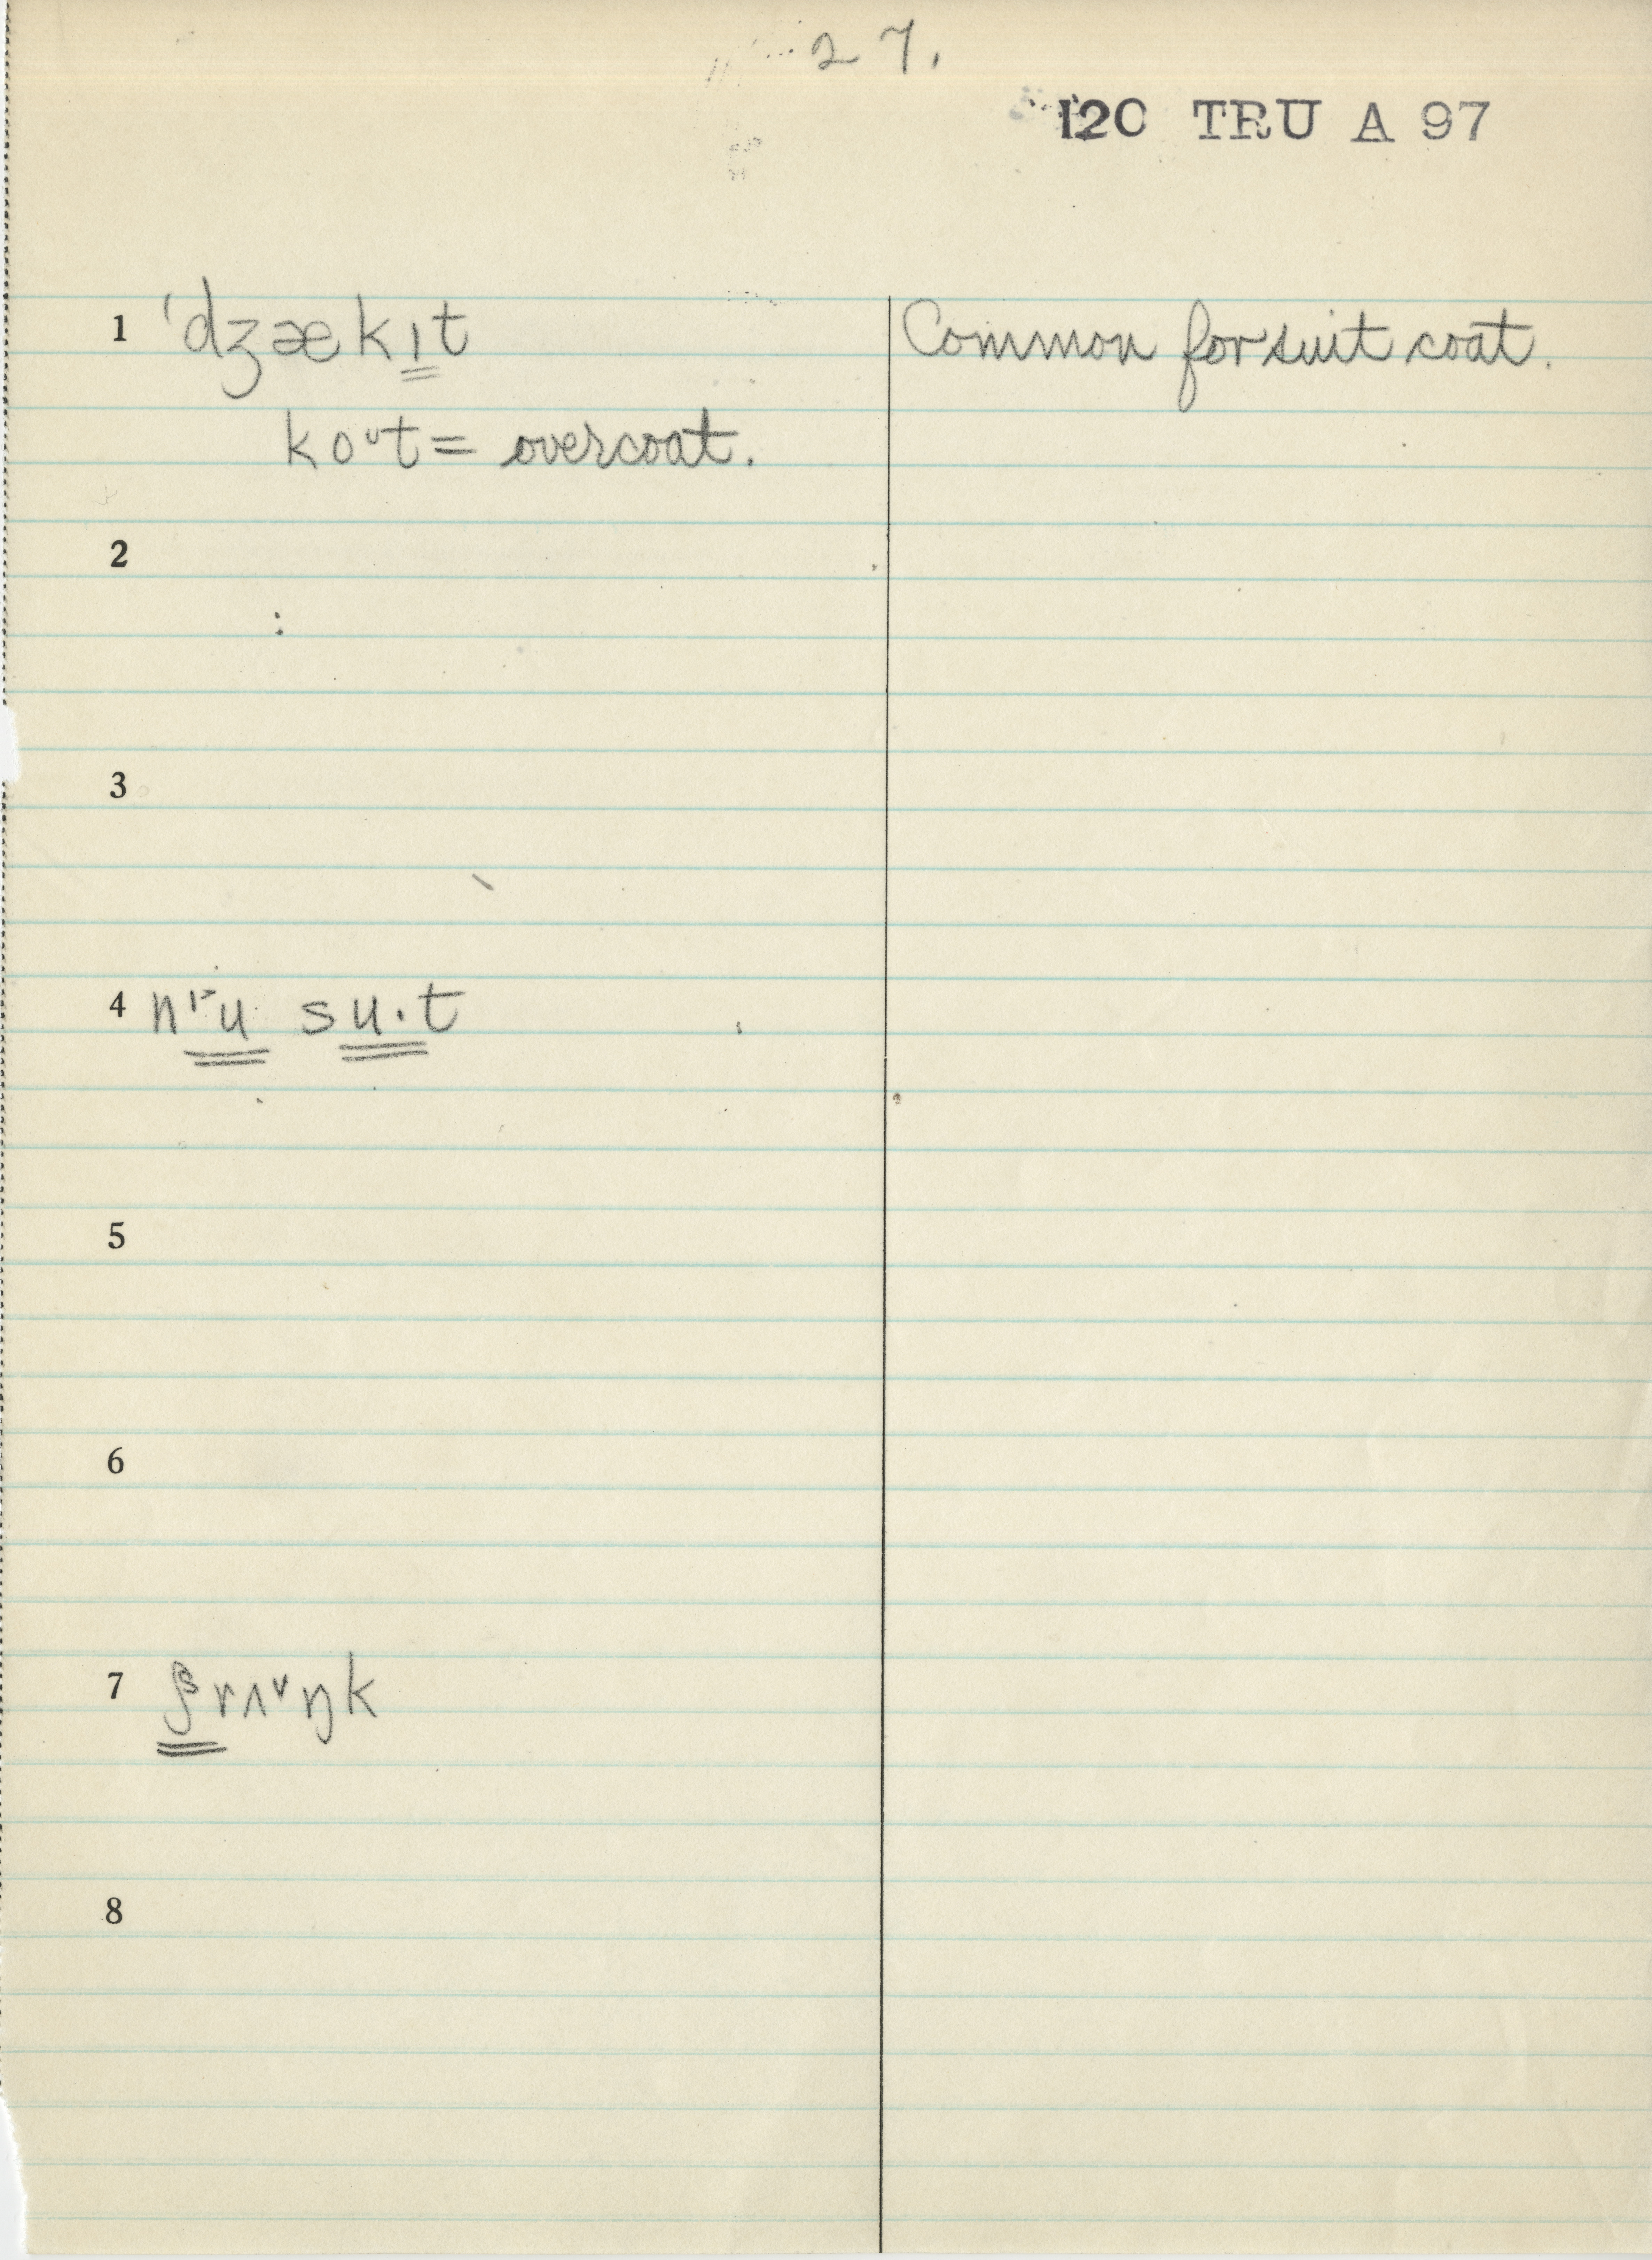 27.
120 TRU A 97
1 ˈdʒækɪt Common for suit coat.
koᶷt = overcoat.
2
3
4 nɪ˔u su·t
5
6
7 rʌ˅ŋk
8